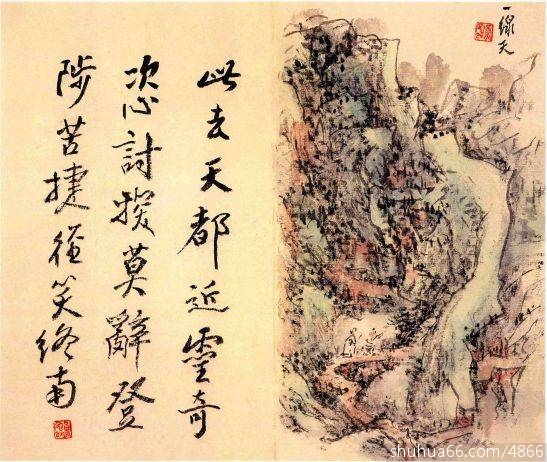 一線天
此去天都近靈奇
恣討探莫辭登
陟苦捷徑笑終南
shuhua66.com/4866